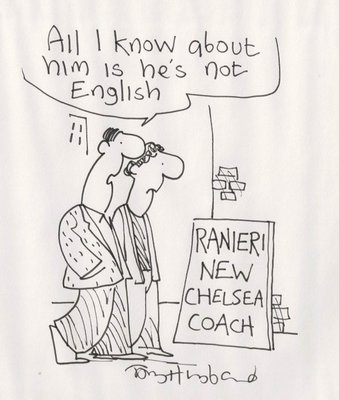 All I know about
him is he's not
English
RANIERI
NEW
CHELSEA
COACH
Tony Husband